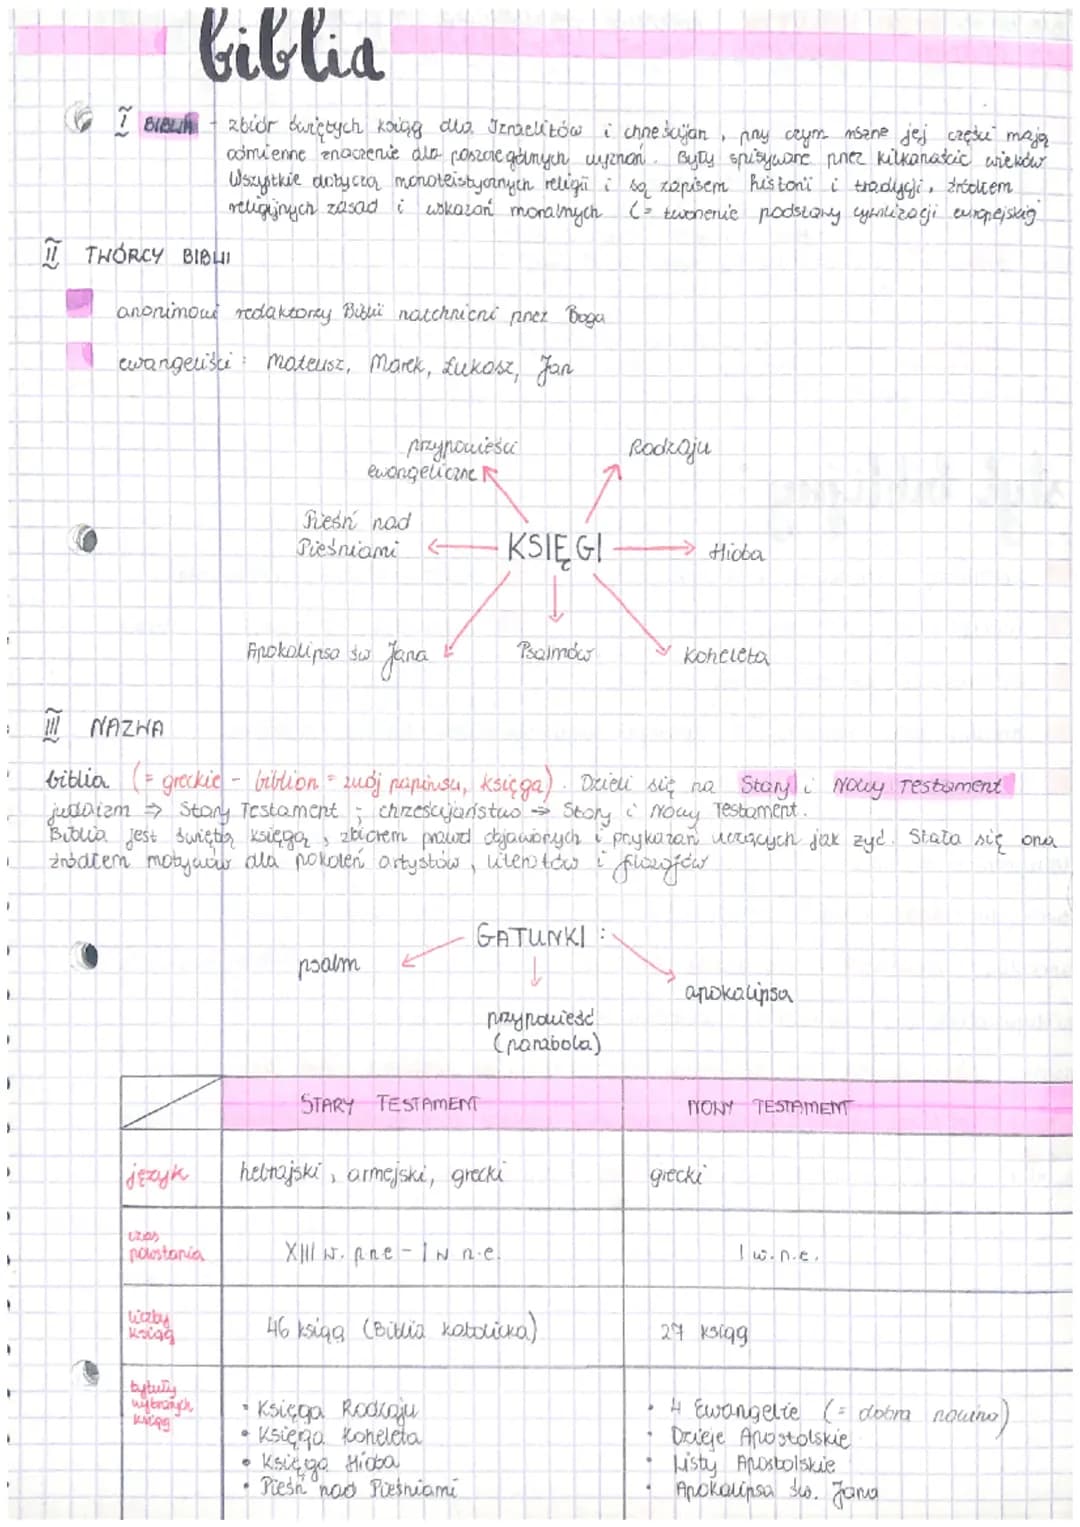 biblia
I BIBLIA - zbiór świętych ksiąg dla Izraelitów i chrześcijan, przy czym różne jej części mają
odmienne znaczenie dla poszczególnych wyznań. Były spisywane przez kilkanaście wieków
Wszystkie dotyczą monoteistycznych religii i są zapisem historii i tradycji, źródłem
religijnych zasad i wskazań moralnych (= tworzenie podstawy cywilizacji europejskiej
II TWÓRCY BIBLII
anonimowi redaktorzy Biblii natchnieni przez Boga
ewangeliści: Mateusz, Marek, Łukasz, Jan
przypowieści
ewangeliczne
Rodzaju
Pieśń nad
Pieśniami
KSIĘGI
Hioba
Apokalipsa św Jana
Psalmów
Koheleta
III NAZWA
biblia (= greckie - biblion = zwój papirusu, księga). Dzieli się na Stary i Nowy Testament
judaizm ⇒ Stary Testament ; chrześcijaństwo → Stary i Nowy Testament.
Biblia jest świętą księgą, zbiorem prawd objawionych i przykazań uczących jak żyć. Stała się ona
źródłem motywów dla pokoleń artystów, literatów i filozofów
GATUNKI :
psalm
apokalipsa
przypowieść
(parabola)
STARY TESTAMENT
NOWY TESTAMENT
język
hebrajski, armejski, grecki
grecki
czas
powstania
XIII w. pne - I w n.e.
I w.n.e.
liczby
ksiąg
46 ksiąg (Biblia katolicka)
27 ksiąg
tytuły
wybranych
ksiąg
• Księga Rodzaju
• Księga Koheleta
• Księga Hioba
• Pieśń nad Pieśniami
• 4 Ewangelie (= dobra nowina)
• Dzieje Apostolskie
• Listy Apostolskie
• Apokalipsa św. Jana